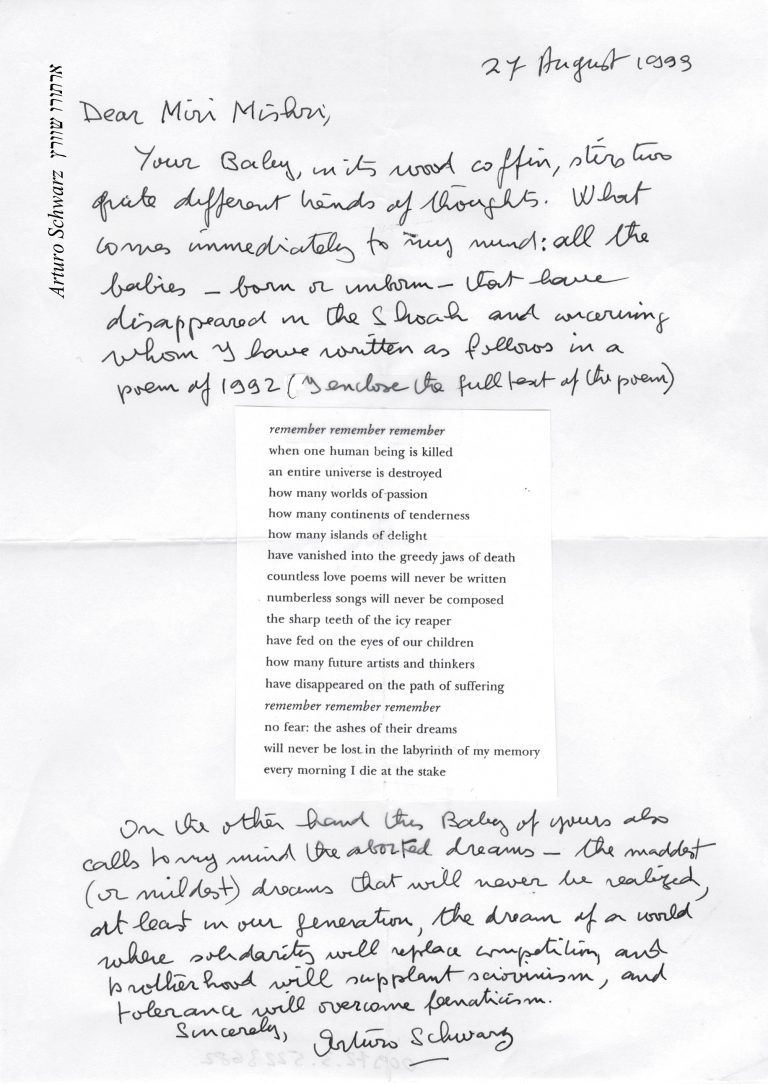 ארתורו שוורץ Arturo Schwarz
27 August 1993
Dear Miri Mishri,
Your Baby, in its wood coffin, stirs two
quite different kinds of thoughts. What
comes immediately to my mind: all the
babies – born or unborn – that have
disappeared in the Shoah and concerning
whom I have written as follows in a
poem of 1992 (I enclose the full text of the poem)
remember remember remember
when one human being is killed
an entire universe is destroyed
how many worlds of passion
how many continents of tenderness
how many islands of delight
have vanished into the greedy jaws of death
countless love poems will never be written
numberless songs will never be composed
the sharp teeth of the icy reaper
have fed on the eyes of our children
how many future artists and thinkers
have disappeared on the path of suffering
remember remember remember
no fear: the ashes of their dreams
will never be lost in the labyrinth of my memory
every morning I die at the stake
On the other hand this Baby of yours also
calls to my mind the aborted dreams – the maddest
(or mildest) dreams that will never be realized,
at least in our generation, the dream of a world
where solidarity will replace competition, and
brotherhood will supplant sciovinism, and
tolerance will overcome fanaticism.
Sincerely, Arturo Schwarz